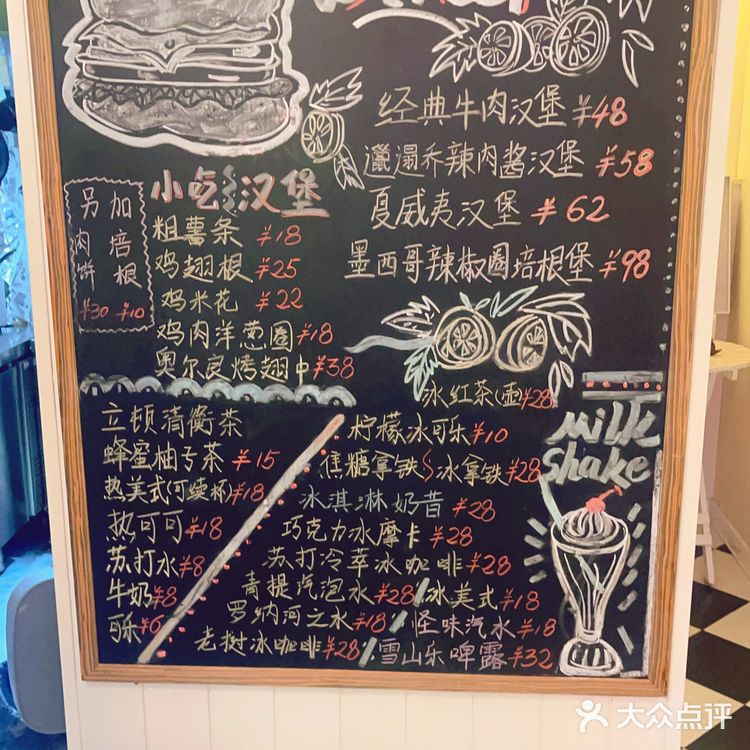 经典牛肉汉堡 ¥48
邋遢乔辣肉酱汉堡 ¥58
夏威夷汉堡 ¥62
墨西哥辣椒圈培根堡 ¥98
小吃 汉堡
另加
肉饼 ¥30
培根 ¥10
粗薯条 ¥18
鸡翅根 ¥25
鸡米花 ¥22
鸡肉洋葱圈 ¥18
奥尔良烤翅中 ¥38
冰红茶(壶) ¥28
Milk
Shake
立顿清衡茶
蜂蜜柚子茶 ¥15
热美式(可续杯) ¥18
热可可 ¥18
苏打水 ¥8
牛奶 ¥8
可乐 ¥6
柠檬冰可乐 ¥10
焦糖拿铁/冰拿铁 ¥28
冰淇淋奶昔 ¥28
巧克力冰摩卡 ¥28
苏打冷萃冰咖啡 ¥28
青提汽泡水 ¥28/冰美式 ¥18
罗纳河之水 ¥18/怪味汽水 ¥18
老树冰咖啡 ¥28/雪山乐啤露 ¥32
大众点评